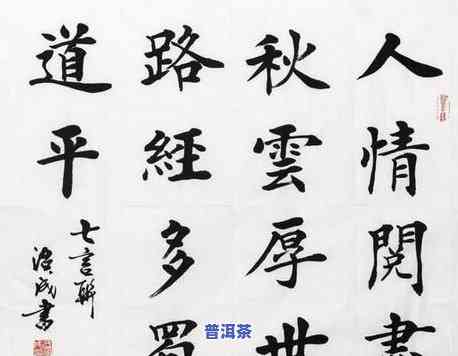 人情閱盡
秋雲厚世
路經多蜀
道平
七言聯
成書
普洱茶